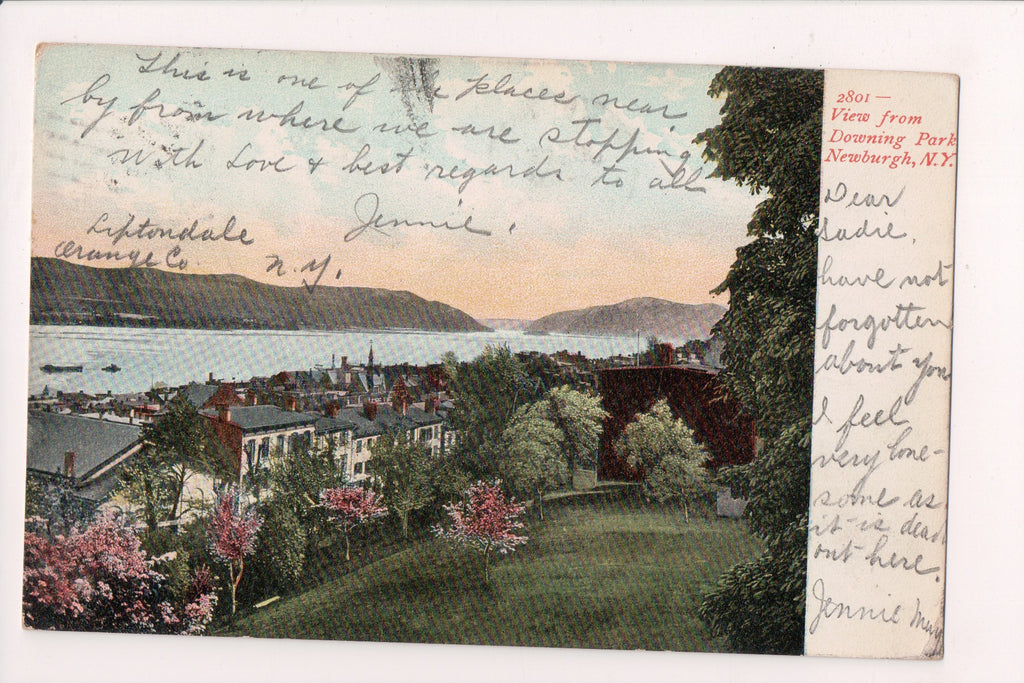 This is one of the places near
by from where we are stopping
with Love & best regards to all
Jennie.
Liptondale
Orange Co.
N.Y.
2801 —
View from
Downing Park
Newburgh, N.Y.
Dear
Sadie,
have not
forgotten
about you
I feel
very lone-
some as
it is dead
out here.
Jennie May